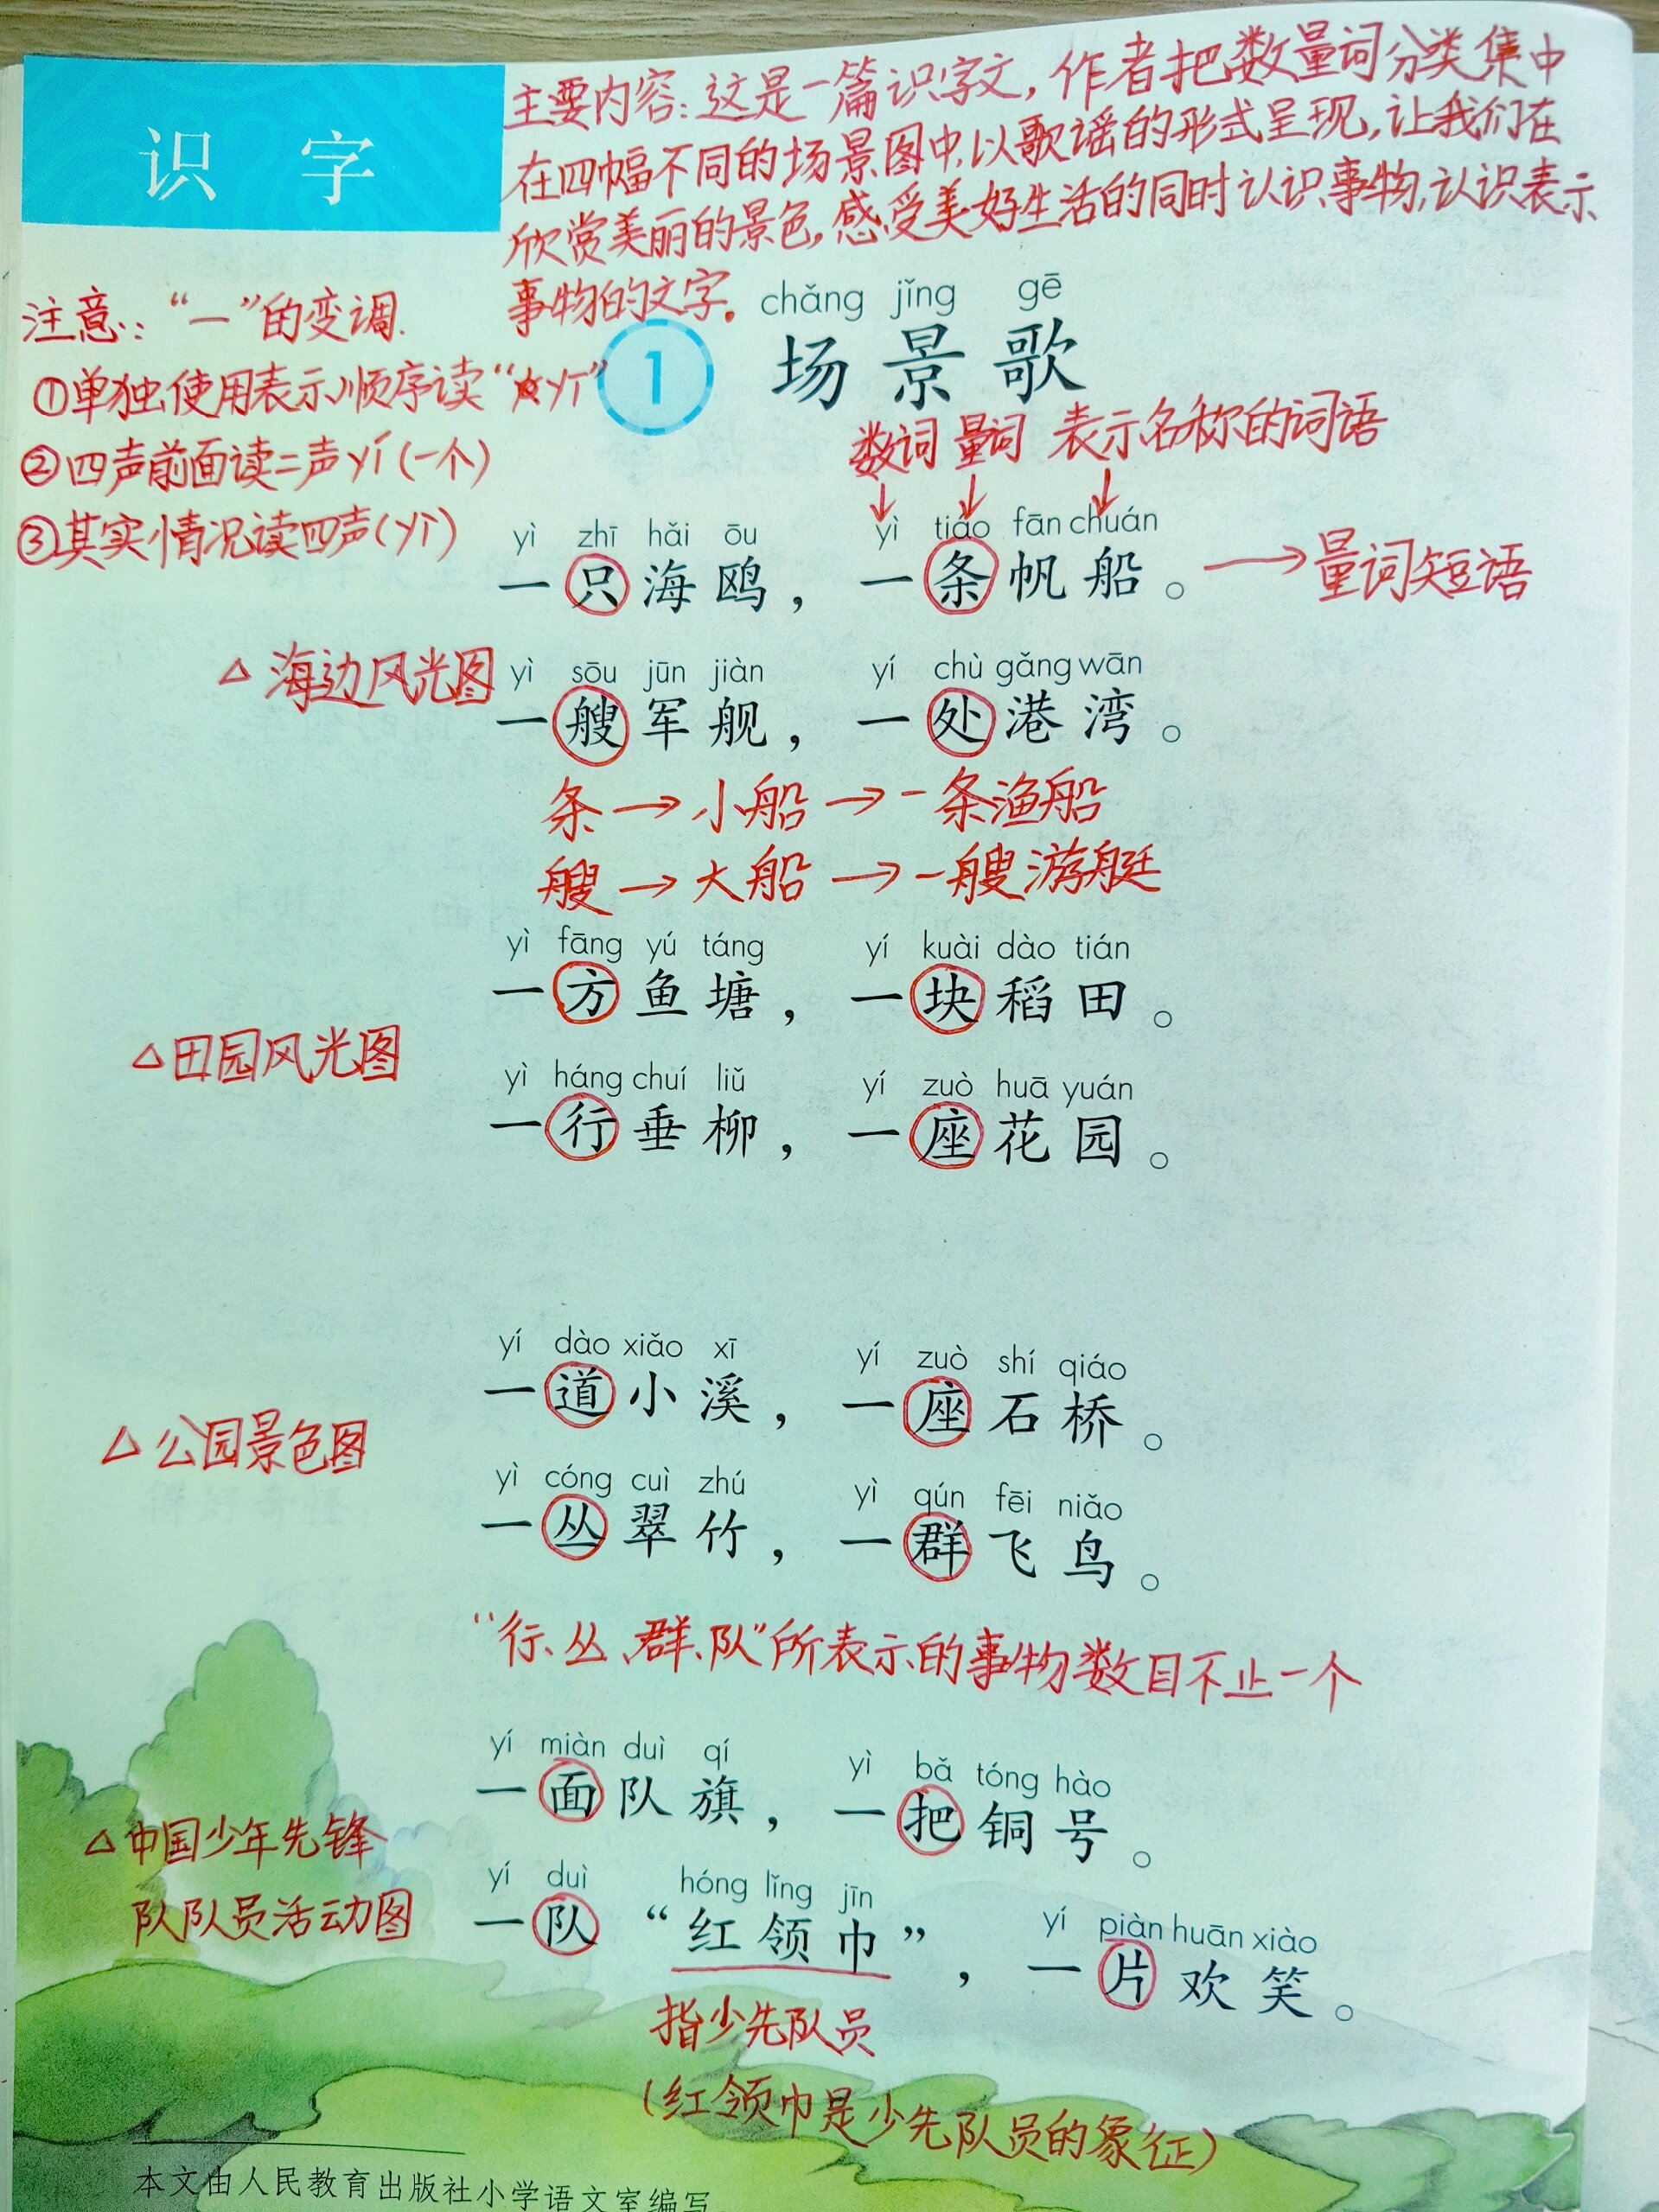 识 字
主要内容：这是一篇识字文，作者把数量词分类集中
在四幅不同的场景图中，以歌谣的形式呈现，让我们在
欣赏美丽的景色，感受美好生活的同时认识事物，认识表示
事物的文字。
注意：“一”的变调.
①单独使用表示顺序读“yī”
②四声前面读二声yí(一个)
③其实情况读四声(yì)
chǎng jǐng gē
1 场景歌
数词 量词 表示名称的词语
yì zhī hǎi ōu yì tiáo fān chuán
一只海鸥，一条帆船。→量词短语
△海边风光图
yì sōu jūn jiàn yí chù gǎng wān
一艘军舰，一处港湾。
条→小船→一条渔船
艘→大船→一艘游艇
yì fāng yú táng yí kuài dào tián
一方鱼塘，一块稻田。
△田园风光图
yì háng chuí liǔ yí zuò huā yuán
一行垂柳，一座花园。
yí dào xiǎo xī yí zuò shí qiáo
一道小溪，一座石桥。
△公园景色图
yì cóng cuì zhú yì qún fēi niǎo
一丛翠竹，一群飞鸟。
“行、丛、群、队”所表示的事物数目不止一个
yí miàn duì qí yì bǎ tóng hào
一面队旗，一把铜号。
△中国少年先锋
队队员活动图
yí duì hóng lǐng jīn yí piàn huān xiào
一队“红领巾”，一片欢笑。
指少先队员
(红领巾是少先队员的象征)
本文由人民教育出版社小学语文室编写